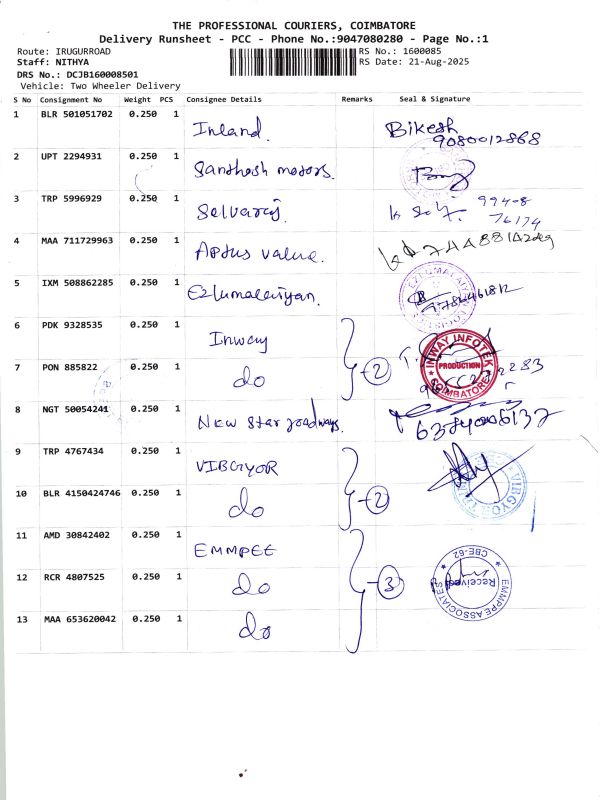 THE PROFESSIONAL COURIERS, COIMBATORE
Delivery Runsheet - PCC - Phone No.:9047080280 - Page No.:1
Route: IRUGURROAD RS No.: 1600085
Staff: NITHYA RS Date: 21-Aug-2025
DRS No.: DCJB160008501
Vehicle: Two Wheeler Delivery
S No Consignment No Weight PCS Consignee Details Remarks Seal & Signature
1 BLR 501051702 0.250 1 Inland. Bikesh
9080012868
2 UPT 2294931 0.250 1 Santhosh motors.
3 TRP 5996929 0.250 1 Selvaraj. 99408
76174
4 MAA 711729963 0.250 1 Aptus value.
5 IXM 508862285 0.250 1 Ezlumalaiyan.
6 PDK 9328535 0.250 1 Inway
INWAY INFOTEK
PRODUCTION
COIMBATORE
7 PON 885822 0.250 1 do -2
8 NGT 50054241 0.250 1 New Star roadways.
9 TRP 4767434 0.250 1 VIBGYOR
10 BLR 4150424746 0.250 1 do -2
11 AMD 30842402 0.250 1 EMMPEE
12 RCR 4807525 0.250 1 do -3
CBE-62
Received
EMMPEE ASSOCIATES
13 MAA 653620042 0.250 1 do